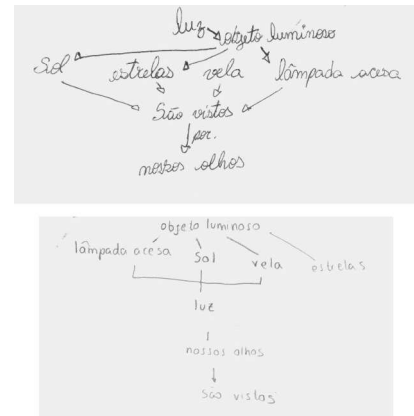 luz objeto luminoso
Sol estrelas vela lâmpada acesa
São vistos
por.
nossos olhos
objeto luminoso
lâmpada acesa Sol vela estrelas
luz
nossos olhos
são vistos